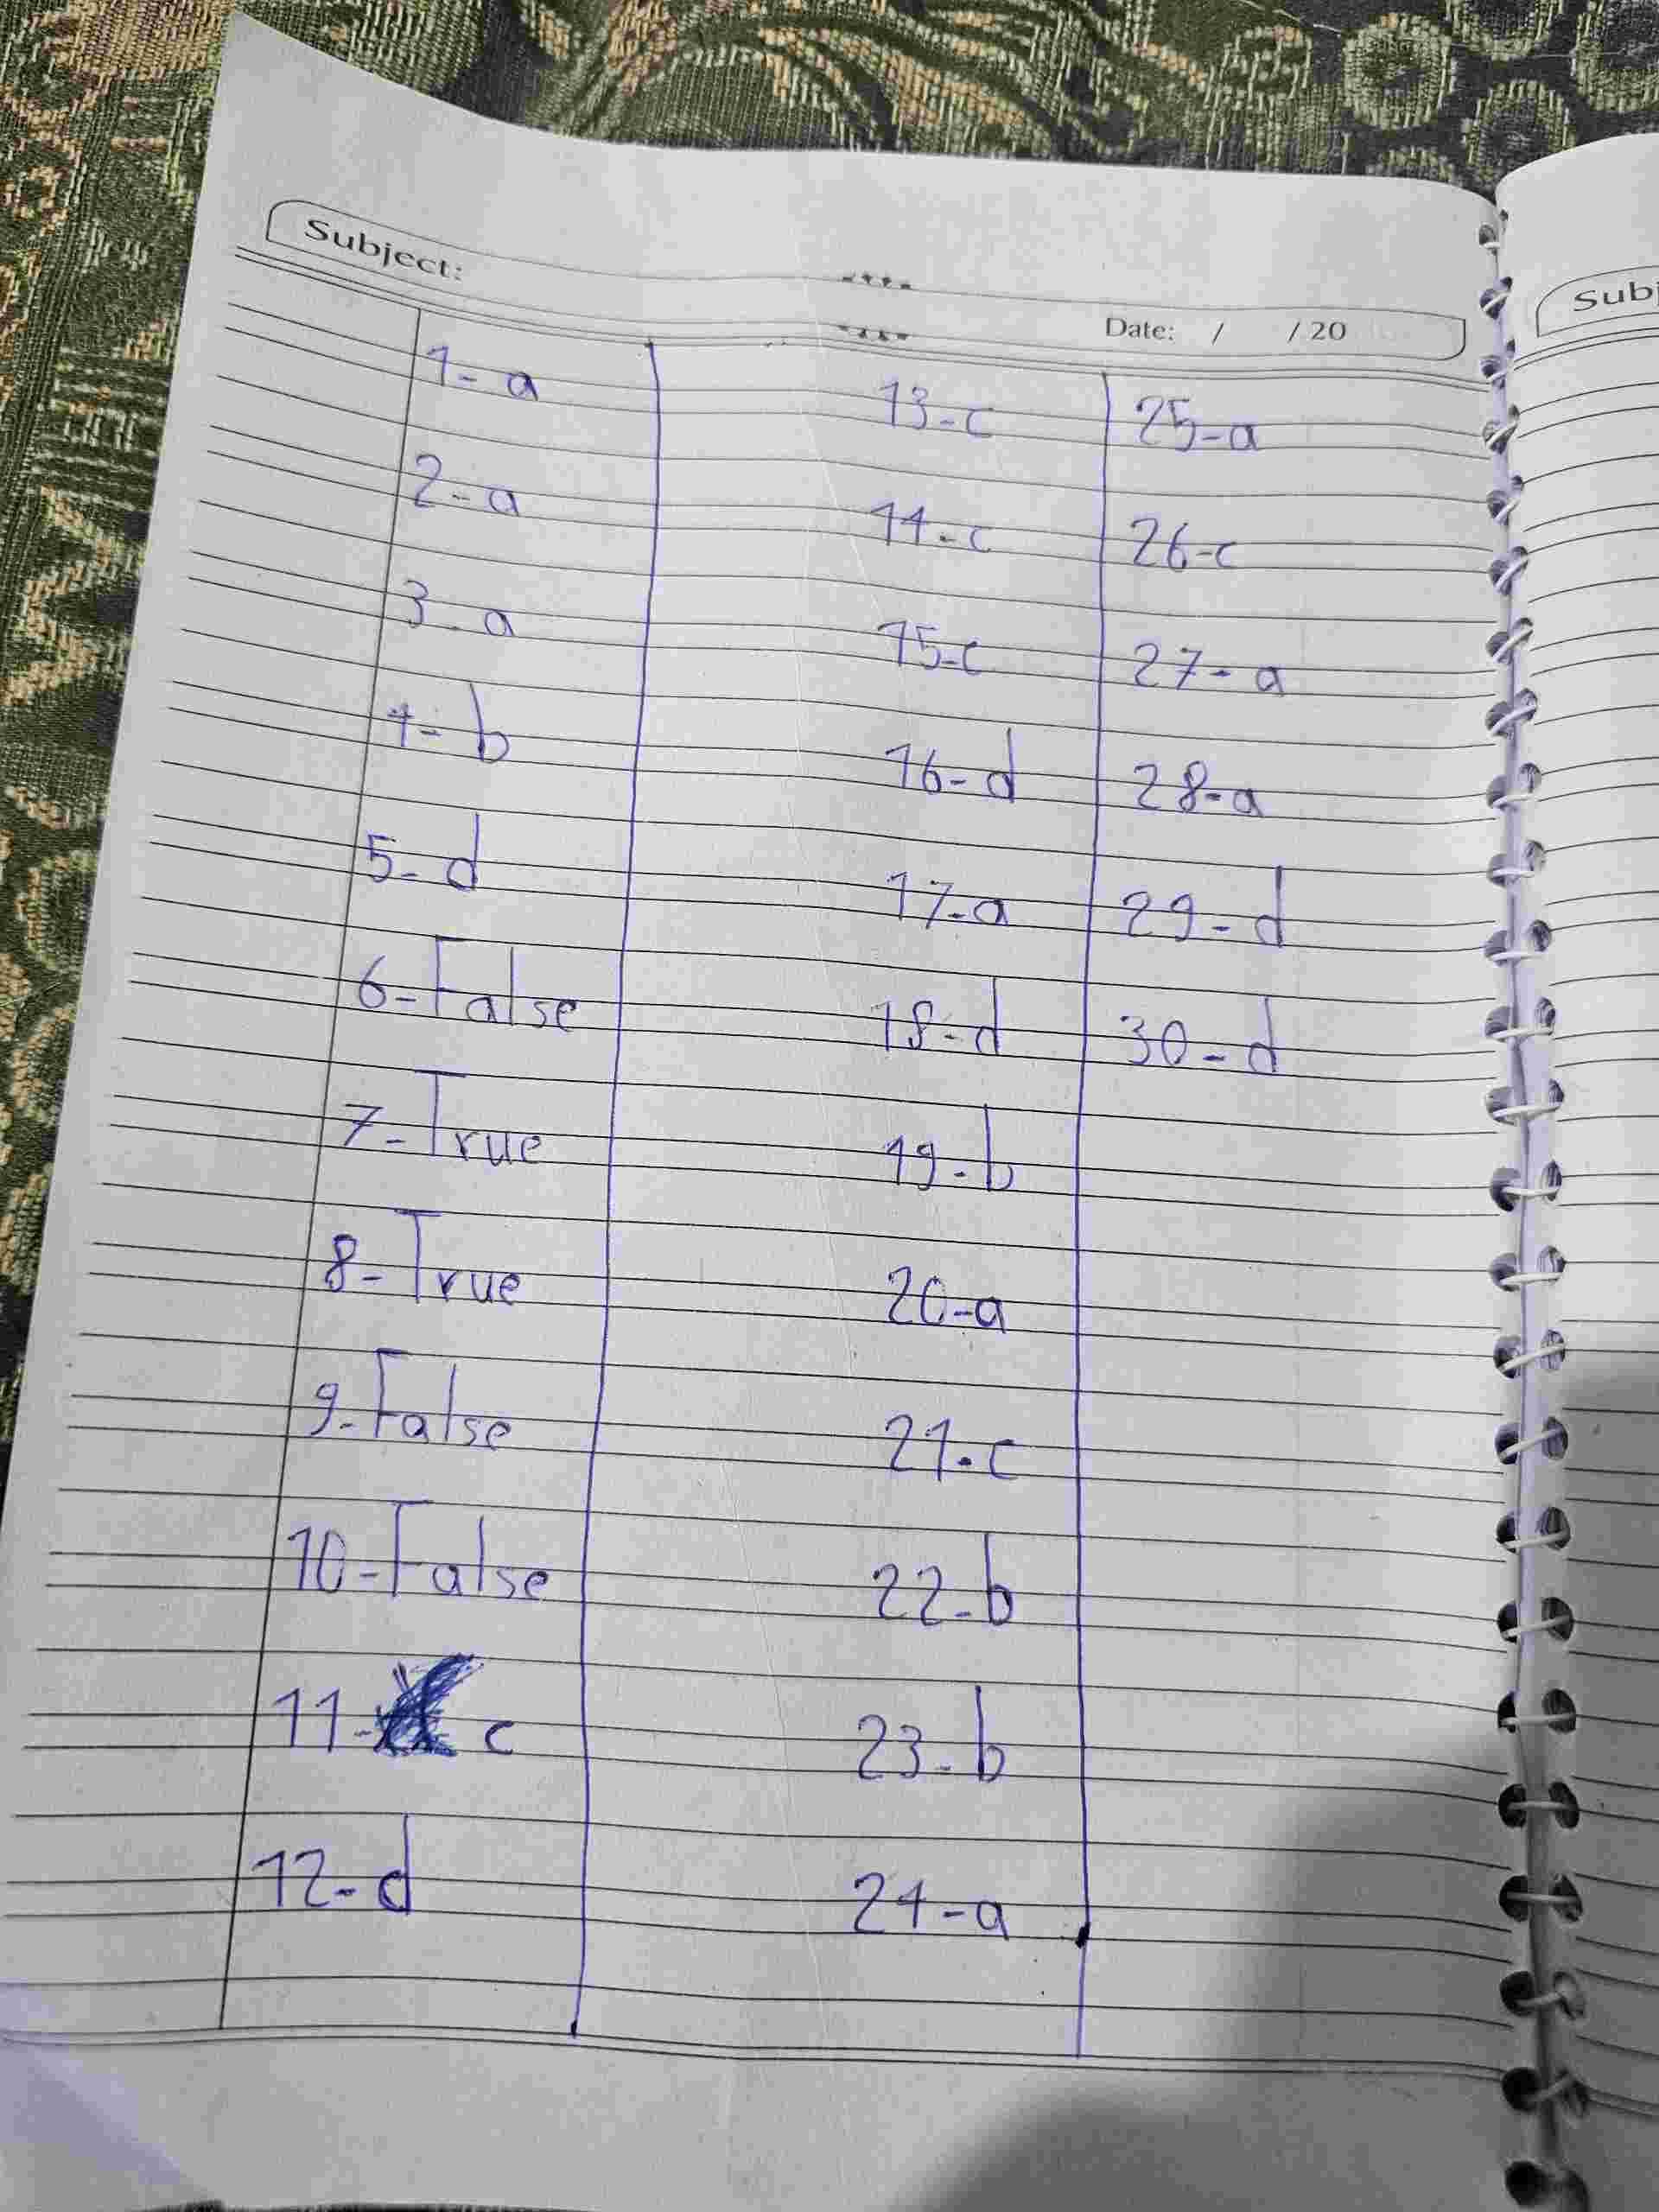 Subject:
Date: / / 20
1- a
2- a
3- a
4- b
5- d
6- False
7- True
8- True
9- False
10- False
11- c
12- d
13- c
14- c
15- c
16- d
17- a
18- d
19- b
20- a
21- c
22- b
23- b
24- a
25- a
26- c
27- a
28- a
29- d
30- d
Subj